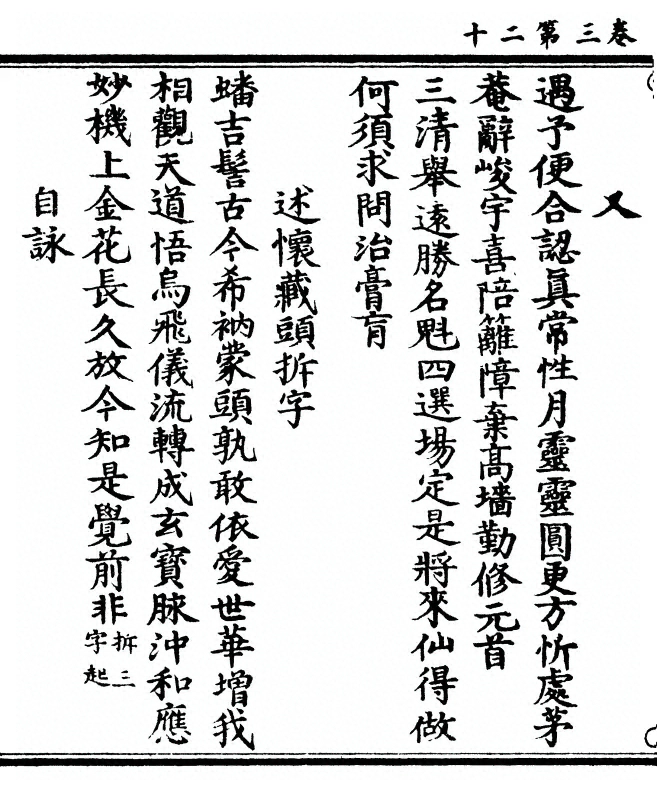 卷三第二十
又
遇予便合認眞常性月靈靈圓更方忻處茅
菴辭峻宇喜陪籬障棄高墻勤修元首
三清舉遠勝名魁四選場定是將來仙得做
何須求問治膏肓
述懷藏頭拆字
蟠吉髻古今希衲蒙頭孰敢依愛世華增我
相觀天道悟烏飛儀流轉成玄寶脉沖和應
妙機上金花長久放今知是覺前非拆三字起
自詠